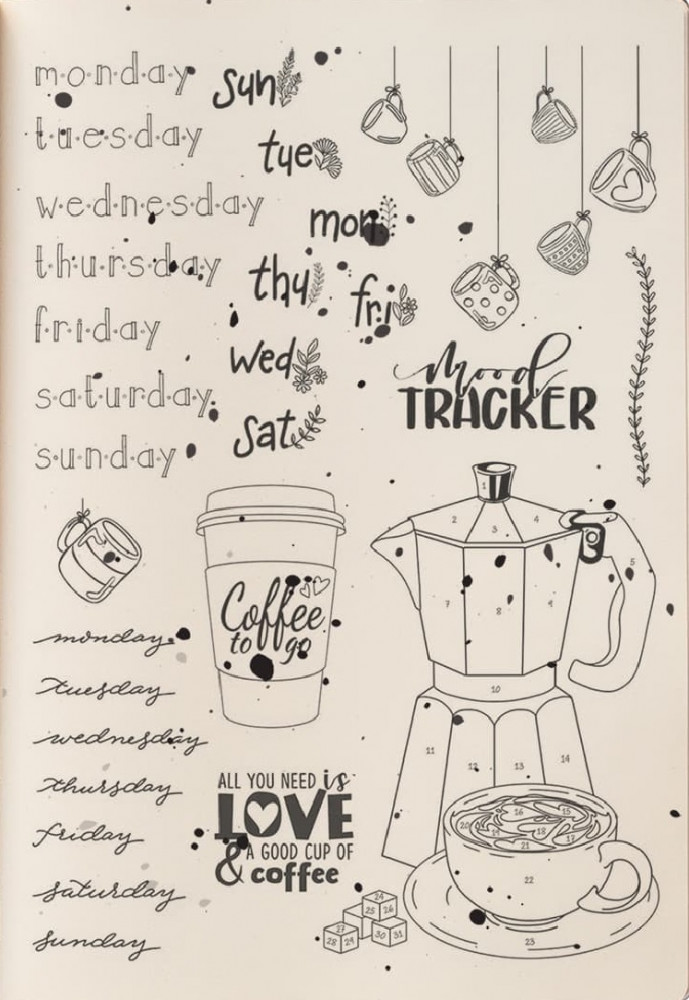 monday
tuesday
wednesday
thursday
friday
saturday
sunday
sun
tue
mon
thu
fri
wed
sat
mood
TRACKER
Coffee
to go
monday
tuesday
wednesday
thursday
friday
saturday
sunday
ALL YOU NEED is
LOVE
& A GOOD CUP OF
coffee
1
2
3
4
5
7
8
9
10
11
12
13
14
15
16
17
18
19
20
21
22
23
24
25 26
27
28 29
30 31